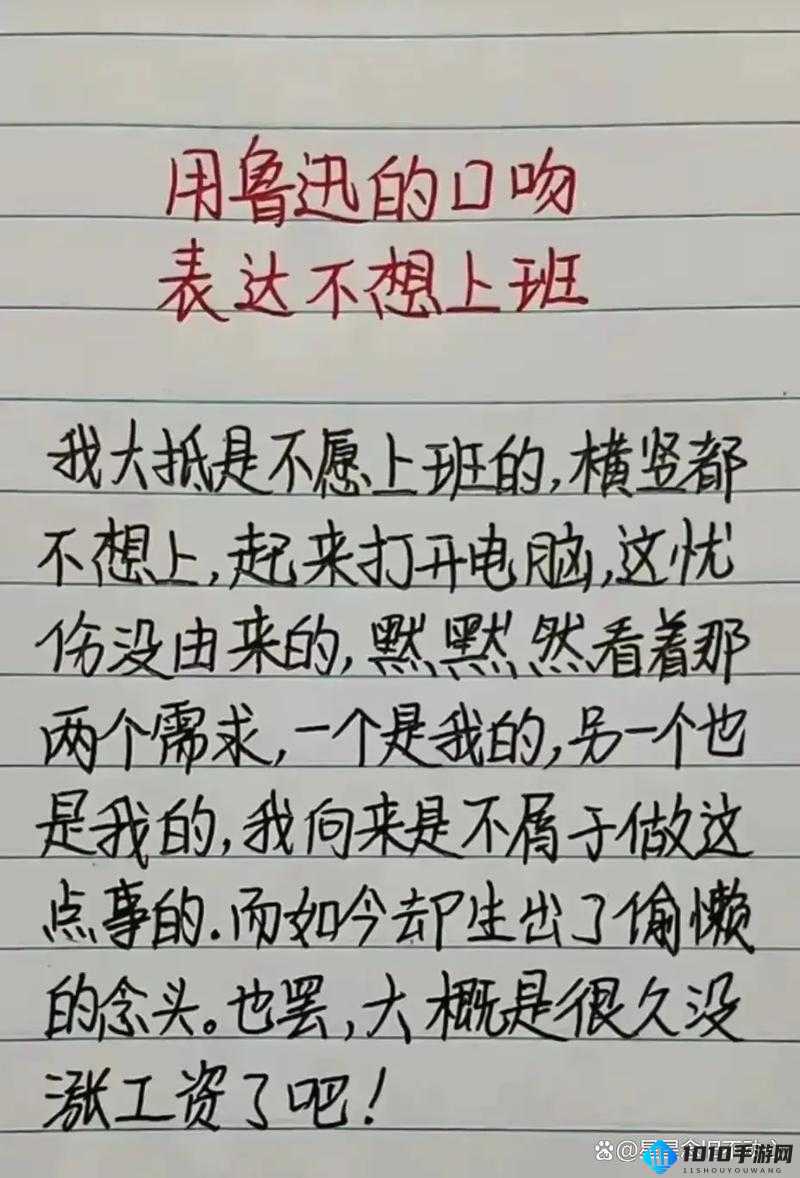 用鲁迅的口吻
表达不想上班
我大抵是不愿上班的,横竖都
不想上,起来打开电脑,这忧
伤没由来的,默默然看着那
两个需求,一个是我的,另一个也
是我的,我向来是不屑于做这
点事的.而如今却生出了偷懒
的念头。也罢,大概是很久没
涨工资了吧!
1010手游网
11SHOUYOUWANG